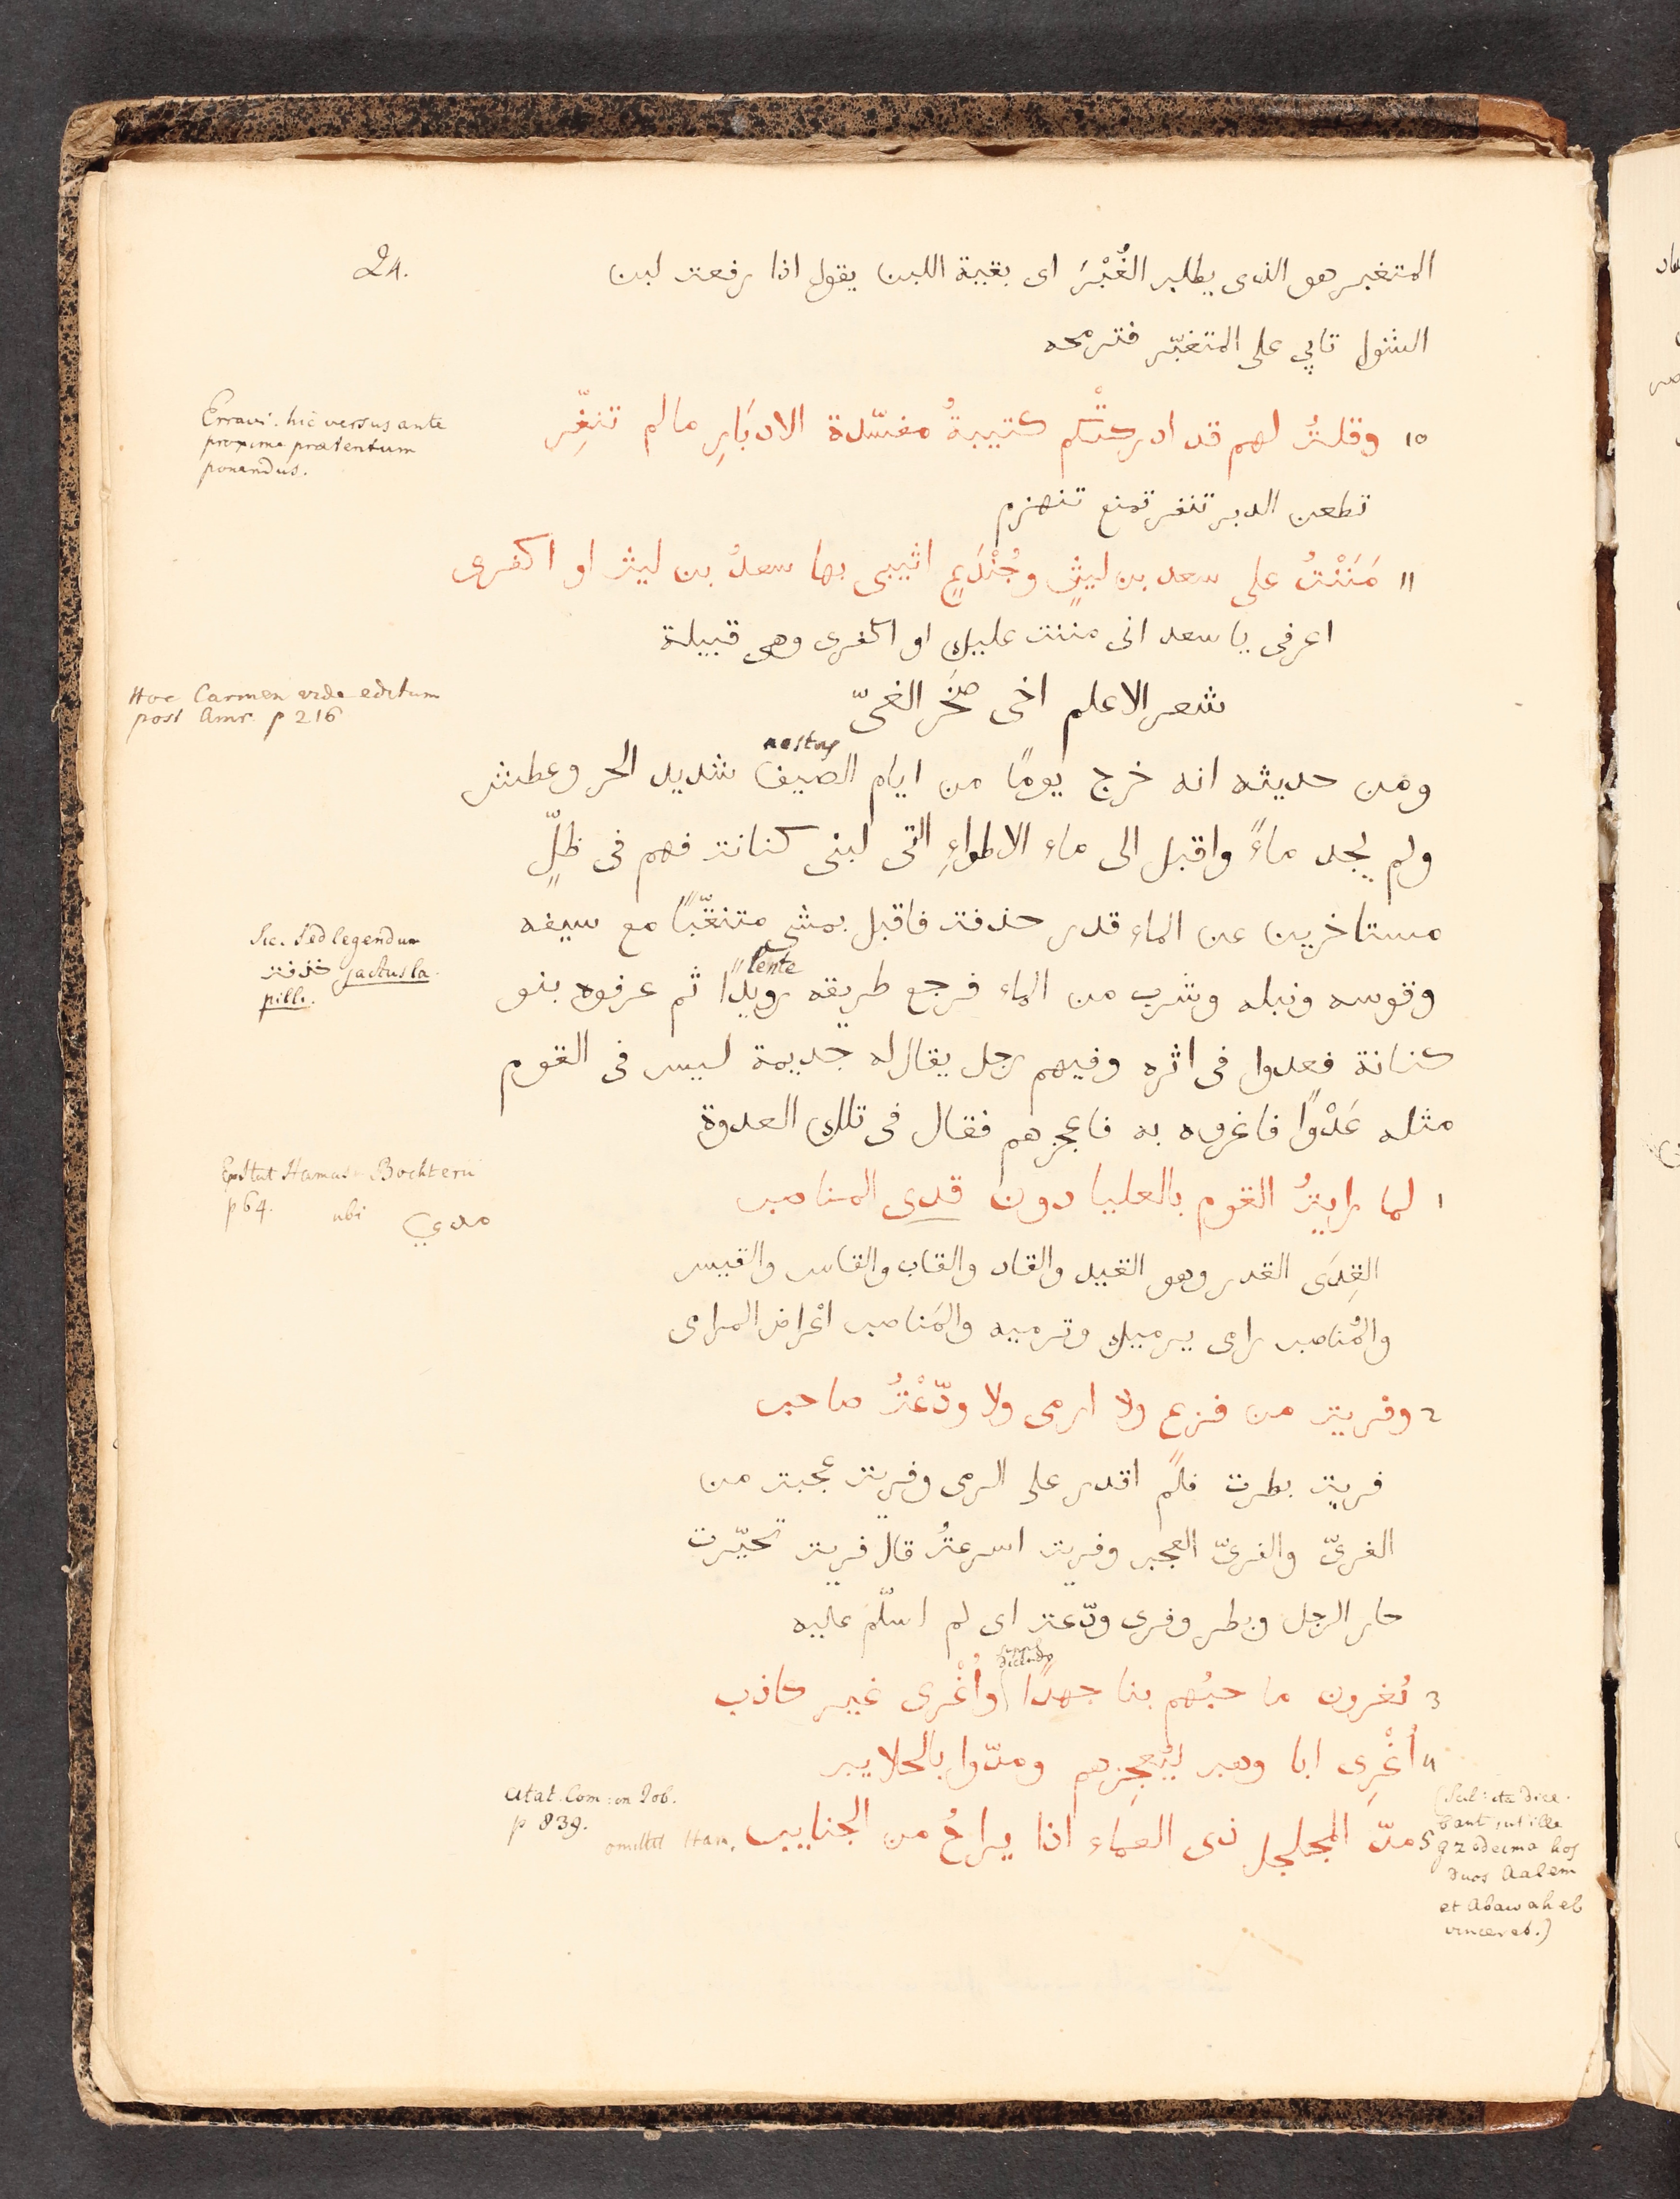 24.
المتغبر هو الذى يطلب الغُبْرَ اى بقية اللبن يقول اذا رفعت لبن
الشول تابي على المتغبّر فترمحه
Erravi. hic versus ante
proxime praetentum
ponendus.
10 وقلتُ لهم قد ادركتْكم كتيبةٌ مفسّدة الادبَارِ ما لم تنفِّرِ
تطعن الدبر تنفر تمنع تنهزم
11 مَنَنْتُ على سعد بن ليثٍ وجُنْدَعٍ اثيبى بها سعدُ بن ليث او اكفرى
اعرفى يا سعد انى مننت عليك او اكفرى وهى قبيلة
Hoc Carmen vide editum
post Amr. p 216
شعر الاعلم اخى صَخْر الغىّ
ومن حديثه انه خرج يومًا من ايام الصيف شديد الحر وعطش
ولم يجد ماءً واقبل الى ماء الاطواءِ التى لبنى كنانة فهم فى ظلٍّ
مستاخرين عن الماء قدر حذفة فاقبل يمشى متنقّبًا مع سيفه
Sic. Sed legendum
خذفة jactus la
pilli.
lente
وقوسه ونبله وشرب من الماء فرجع طريقه رويدًا ثم عرفوه بنو
كنانة فعدوا فى اثره وفيهم رجل يقال له جديمة ليس فى القوم
مثله عَدْوًا فاغروه به فاعجزهم فقال فى تلك العدوة
Exstat Hamas. Bochterii
p 64. ubi مدي
1 لما رايتُ القوم بالعليا دون قدى المناصب
القِدَى القدر وهو القيد والقاد والقاب والقاس والقيس
والمُناصب رامى يرميك وترميه والمَناصب اغراض المرامى
2 وفريت من فزع ولا ارمى ولا ودّعْتُ صاحب
فريت بطرت فلم اقدر على الرمى وفريت عجبت من
الفرىّ والفرىّ العجب وفريت اسرعتُ قال فريت تحيّرت
حار الرجل وبطر وفرى ودّعت اى لم اسلّم عليه
dicendo
3 تُغرون ما حبُهم بنا جهدًا واُغْرى غير كاذب
4 اُغْرِى ابا وهب ليُعجِزهم ومدّوا بالحلايب
citat. Com: in Iob.
p 839.
omittit Ham.
5 مدّ المجلجل ذى العماء اذا يراحُ من الجنايب
duos Aalem
et Abawaheb
vinceret.)